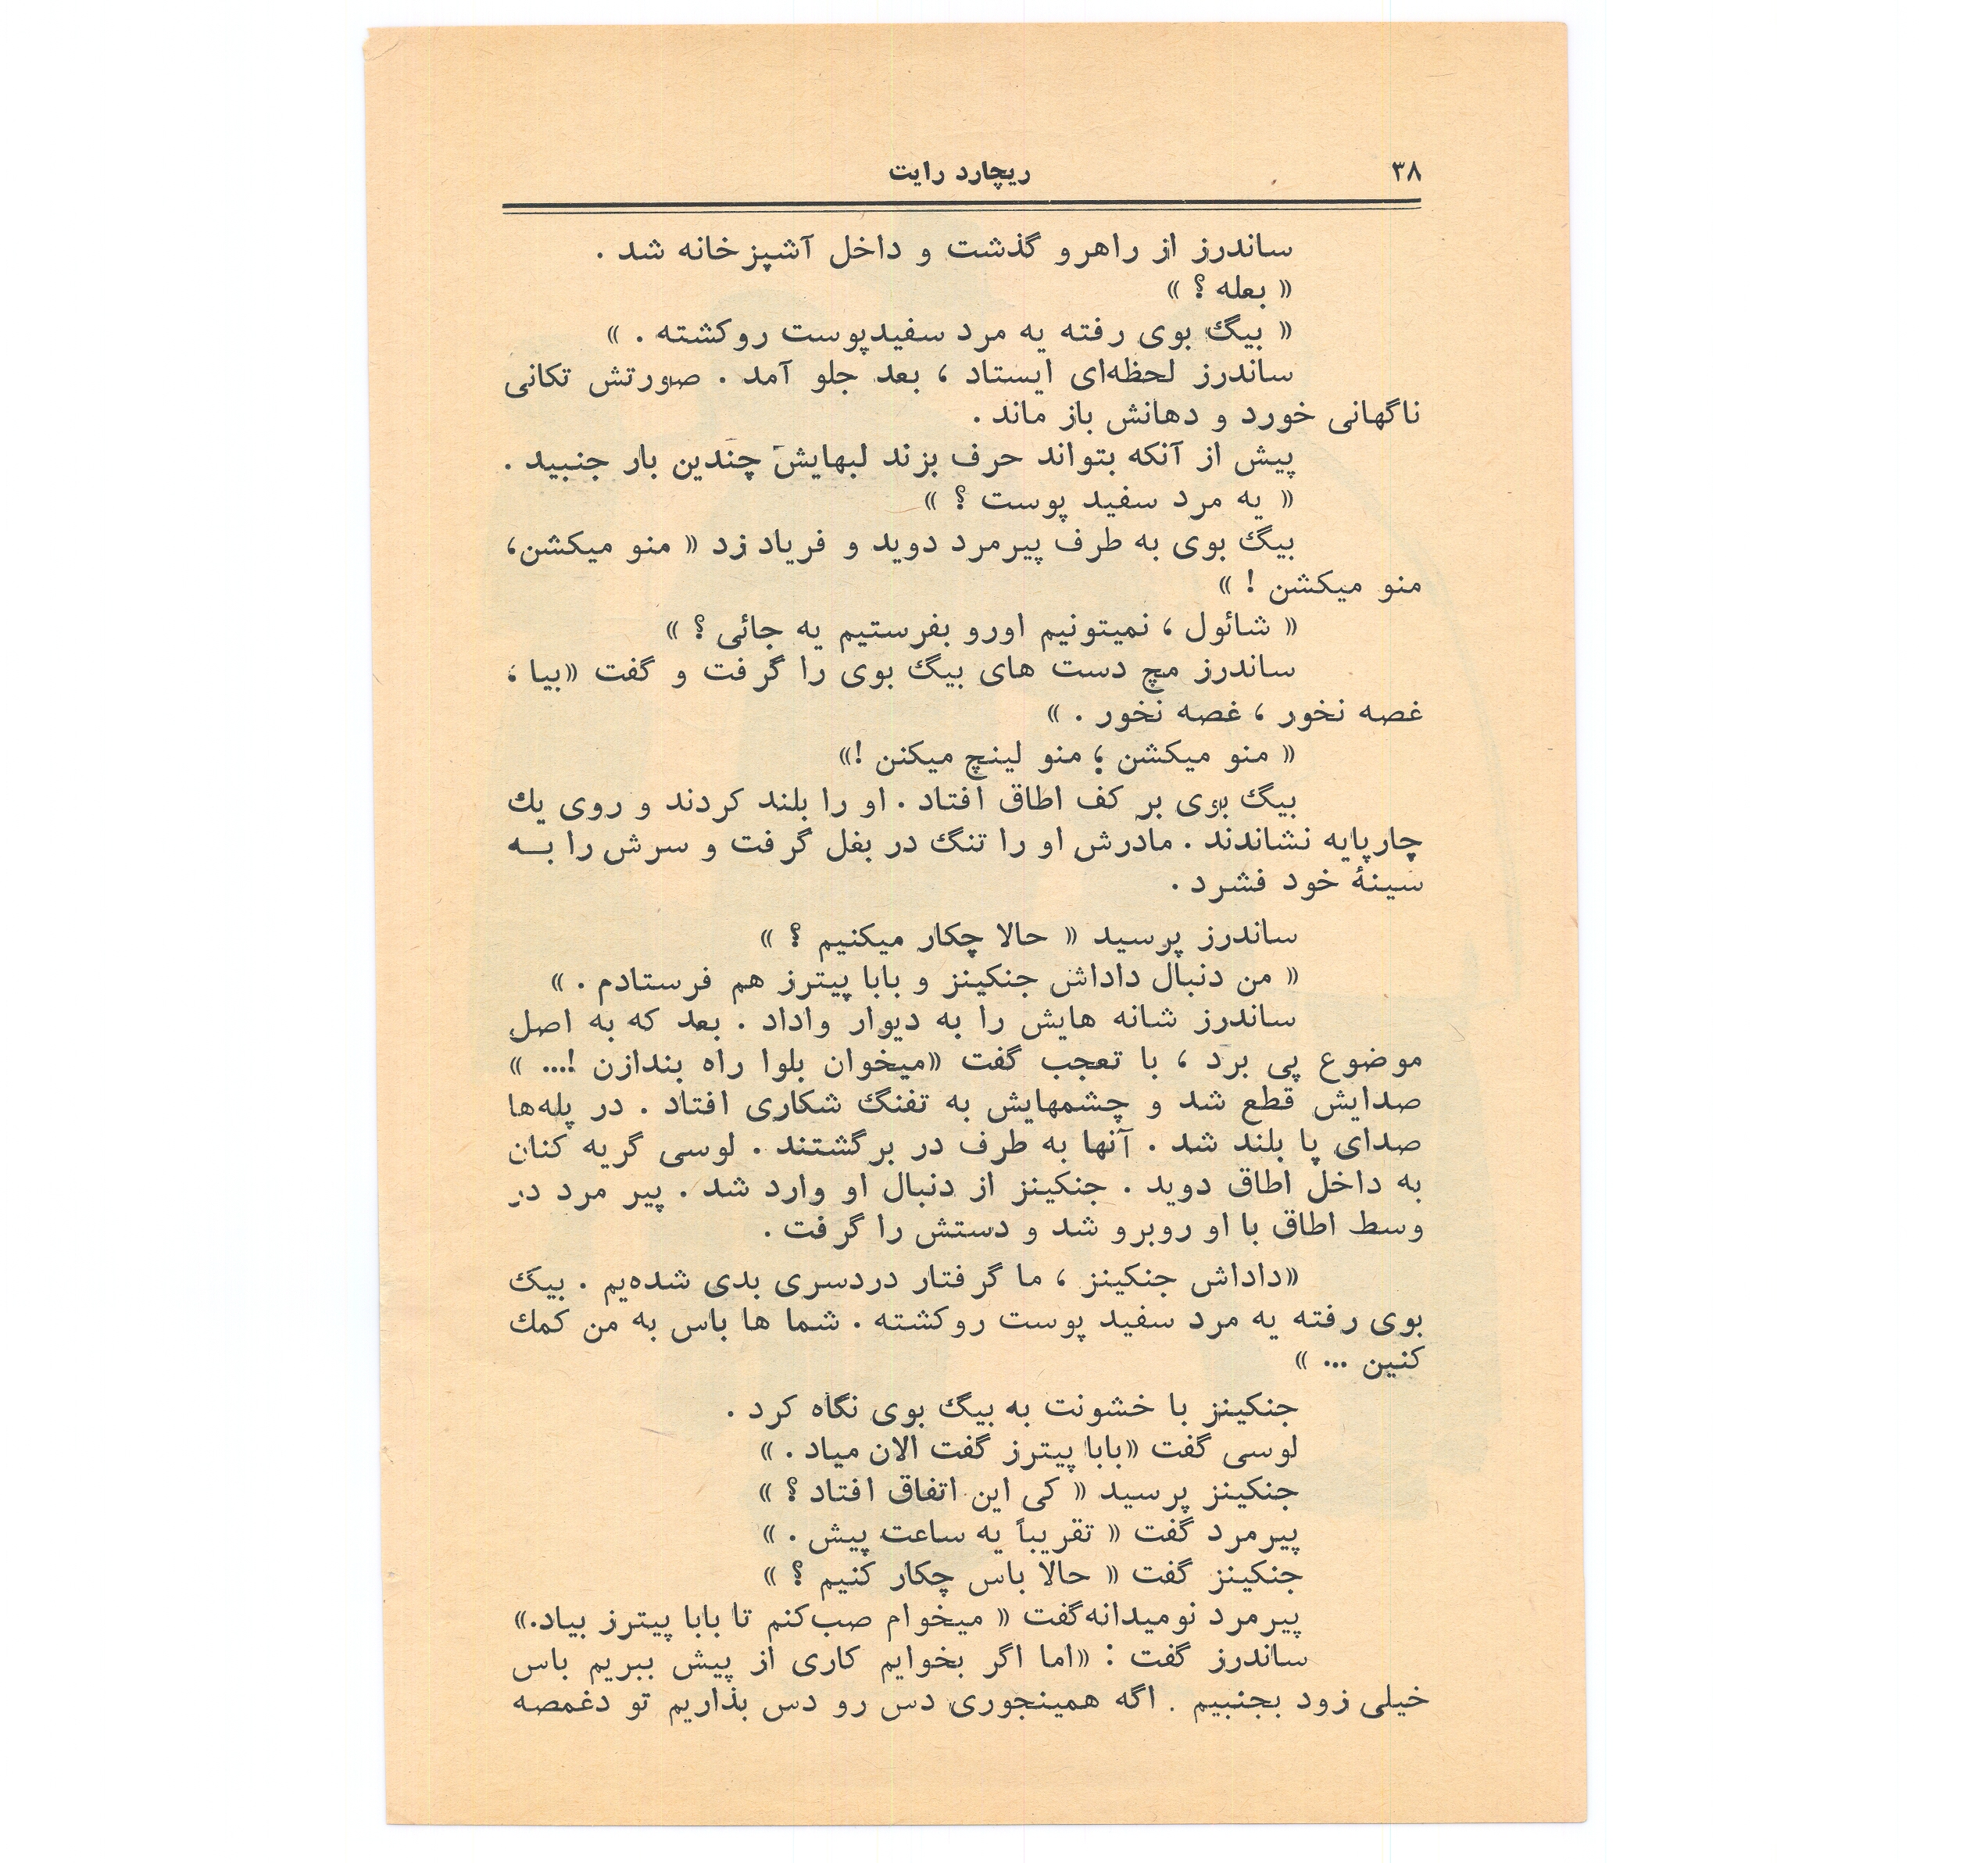 ۳۸
ریچارد رایت
ساندرز از راهرو گذشت و داخل آشپزخانه شد .
« بعله ؟ »
« بیگ بوی رفته یه مرد سفیدپوست روکشته . »
ساندرز لحظه‌ای ایستاد ، بعد جلو آمد . صورتش تکانی
ناگهانی خورد و دهانش باز ماند .
پیش از آنکه بتواند حرف بزند لبهایش چندین بار جنبید .
« یه مرد سفید پوست ؟ »
بیگ بوی به طرف پیرمرد دوید و فریاد زد « منو میکشن،
منو میکشن ! »
« شائول ، نمیتونیم اورو بفرستیم یه جائی ؟ »
ساندرز مچ دست های بیگ بوی را گرفت و گفت «بیا ،
غصه نخور ، غصه نخور . »
« منو میکشن ؛ منو لینچ میکنن !»
بیگ بوی بر کف اطاق افتاد . او را بلند کردند و روی یك
چارپایه نشاندند . مادرش او را تنگ در بغل گرفت و سرش را بـه
سینهٔ خود فشرد .
ساندرز پرسید « حالا چکار میکنیم ؟ »
« من دنبال داداش جنکینز و بابا پیترز هم فرستادم . »
ساندرز شانه هایش را به دیوار واداد . بعد که به اصل
موضوع پی برد ، با تعجب گفت «میخوان بلوا راه بندازن !... »
صدایش قطع شد و چشمهایش به تفنگ شکاری افتاد . در پله‌ها
صدای پا بلند شد . آنها به طرف در برگشتند . لوسی گریه کنان
به داخل اطاق دوید . جنکینز از دنبال او وارد شد . پیر مرد در
وسط اطاق با او روبرو شد و دستش را گرفت .
«داداش جنکینز ، ما گرفتار دردسری بدی شده‌یم . بیگ
بوی رفته یه مرد سفید پوست روکشته . شما ها باس به من کمك
کنین ... »
جنکینز با خشونت به بیگ بوی نگاه کرد .
لوسی گفت «بابا پیترز گفت الان میاد . »
جنکینز پرسید « کی این اتفاق افتاد ؟ »
پیرمرد گفت « تقریباً یه ساعت پیش . »
جنکینز گفت « حالا باس چکار کنیم ؟ »
پیرمرد نومیدانه‌گفت « میخوام صب‌کنم تا بابا پیترز بیاد.»
ساندرز گفت : «اما اگر بخوایم کاری از پیش ببریم باس
خیلی زود بجنبیم . اگه همینجوری دس رو دس بذاریم تو دغمصه